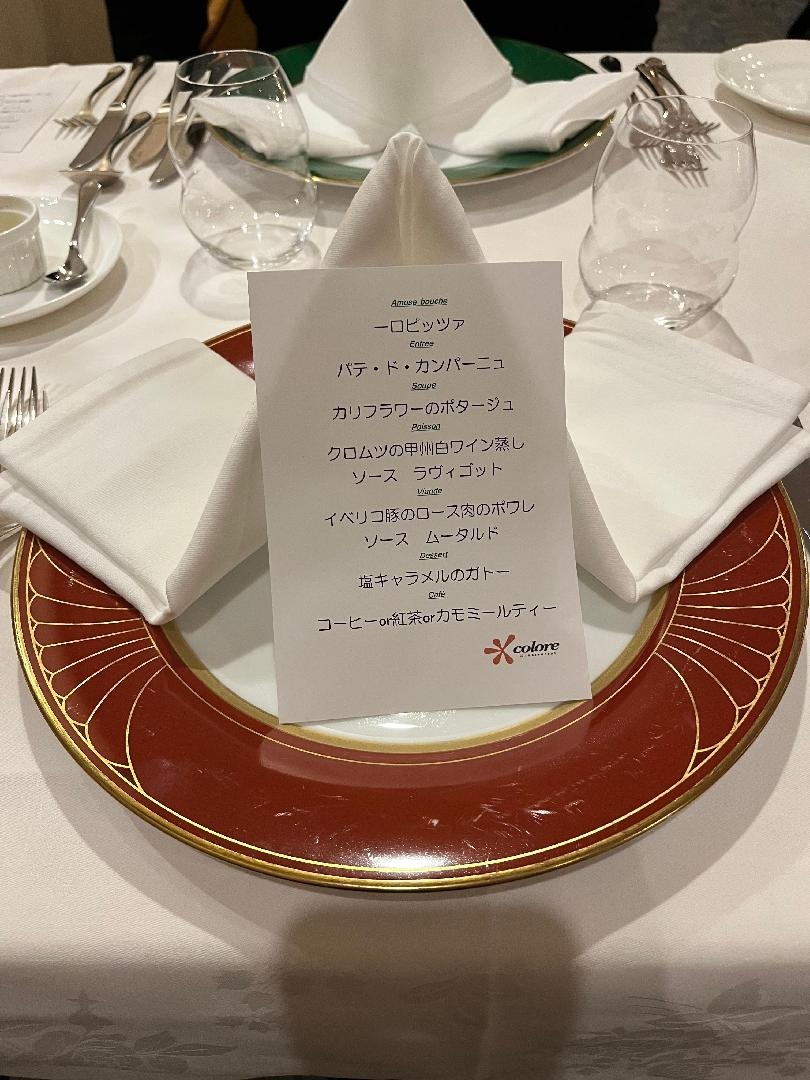 Amuse bouche
一口ピッツァ
Entree
パテ・ド・カンパーニュ
Soupe
カリフラワーのポタージュ
Poisson
クロムツの甲州白ワイン蒸し
ソース　ラヴィゴット
Viande
イベリコ豚のロース肉のポワレ
ソース　ムータルド
Dessert
塩キャラメルのガトー
Café
コーヒーor紅茶orカモミールティー
colore